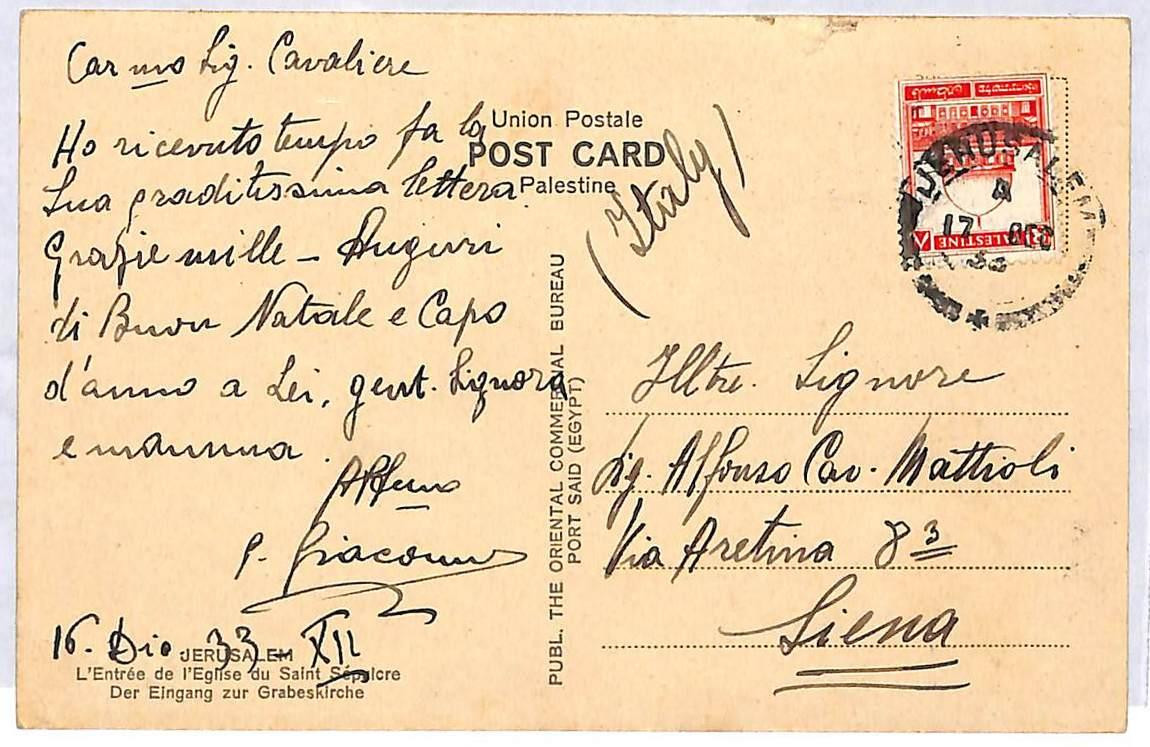 Car mo Sig. Cavaliere
Ho ricevuto tempo fa la
Sua graditissima lettera.
Grazie mille - Auguri
di Buon Natale e Capo
d'anno a Lei, gent. Signora
e mamma.
Aff.mo
P. Giacomo
16. Dic. 33. XII
JERUSALEM
L'Entrée de l'Eglise du Saint Sépulcre
Der Eingang zur Grabeskirche
Union Postale
POST CARD
Palestine
(Italy)
PUBL. THE ORIENTAL COMMERCIAL BUREAU
PORT SAID (EGYPT)
PALESTINE
JERUSALEM
17 DEC
33
Illtre. Signore
Sig. Alfonso Cav. Mattioli
Via Aretina 83
Siena